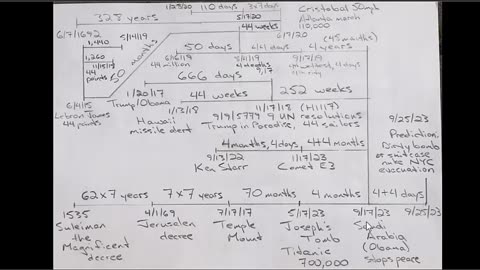 323 years
1/23/20
110 days
3x7 days
5/17/20
Cristobal 50mph
Atlanta march
110,000
6/7/1692
5/14/19
44 weeks
6/7/20
(45 months)
1,440
50 months
50 days
4 years
1,260
11/15/18
44
points
6/6/19
44 million
9/17/19
666 days
252 weeks
6/4/15
Lebron James
44 points
1/20/17
Trump/Obama
44 weeks
1/13/18
Hawaii
missile alert
11/17/18 (H1117)
9/19/5779 9 UN resolutions
Trump in Paradise, 44 sailors
9/25/23
Prediction:
Dirty bomb
or suitcase
nuke NYC
evacuation
4 months, 4 days, 4+4 months
9/13/22
Ken Starr
1/17/23
Comet E3
62x7 years
7x7 years
70 months
4 months
4+4 days
1535
4/1/69
7/17/17
5/17/23
9/17/23
9/25/23
Suleiman
the
Magnificent
decree
Jerusalem
decree
Temple
Mount
Joseph's
Tomb
Titanic
700,000
Saudi
Arabia
(Obama)
stops peace